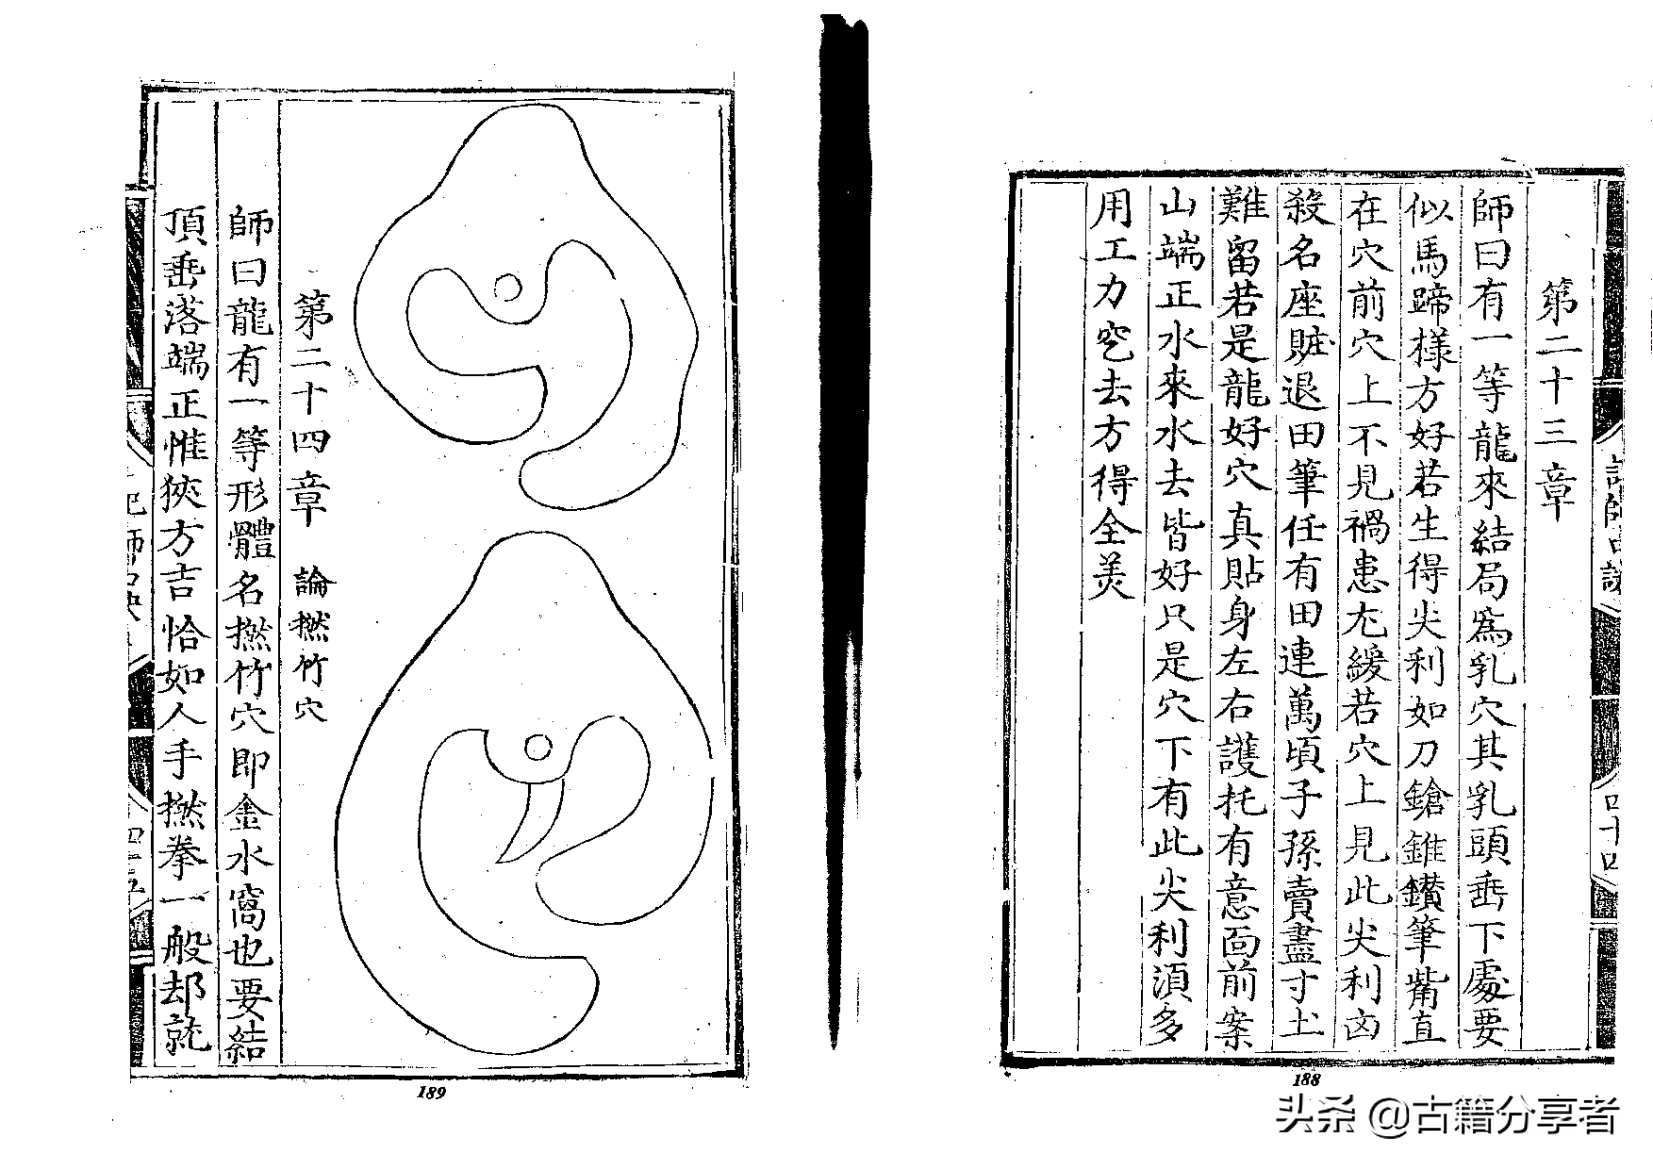 第二十三章
師曰有一等龍來結局為乳穴其乳頭垂下處要
似馬蹄樣方好若生得尖利如刀鎗錐鑽筆觜直
在穴前穴上不見禍患尤緩若穴上見此尖利凶
殺名座賍退田筆任有田連萬頃子孫賣盡寸土
難留若是龍好穴真貼身左右護托有意面前案
山端正水來水去皆好只是穴下有此尖利湏多
用工力穵去方得全美
四十四
188
第二十四章 論撚竹穴
師曰龍有一等形體名撚竹穴即金水窩也要結
頂垂落端正惟狹方吉恰如人手撚拳一般却就
189
头条 @古籍分享者